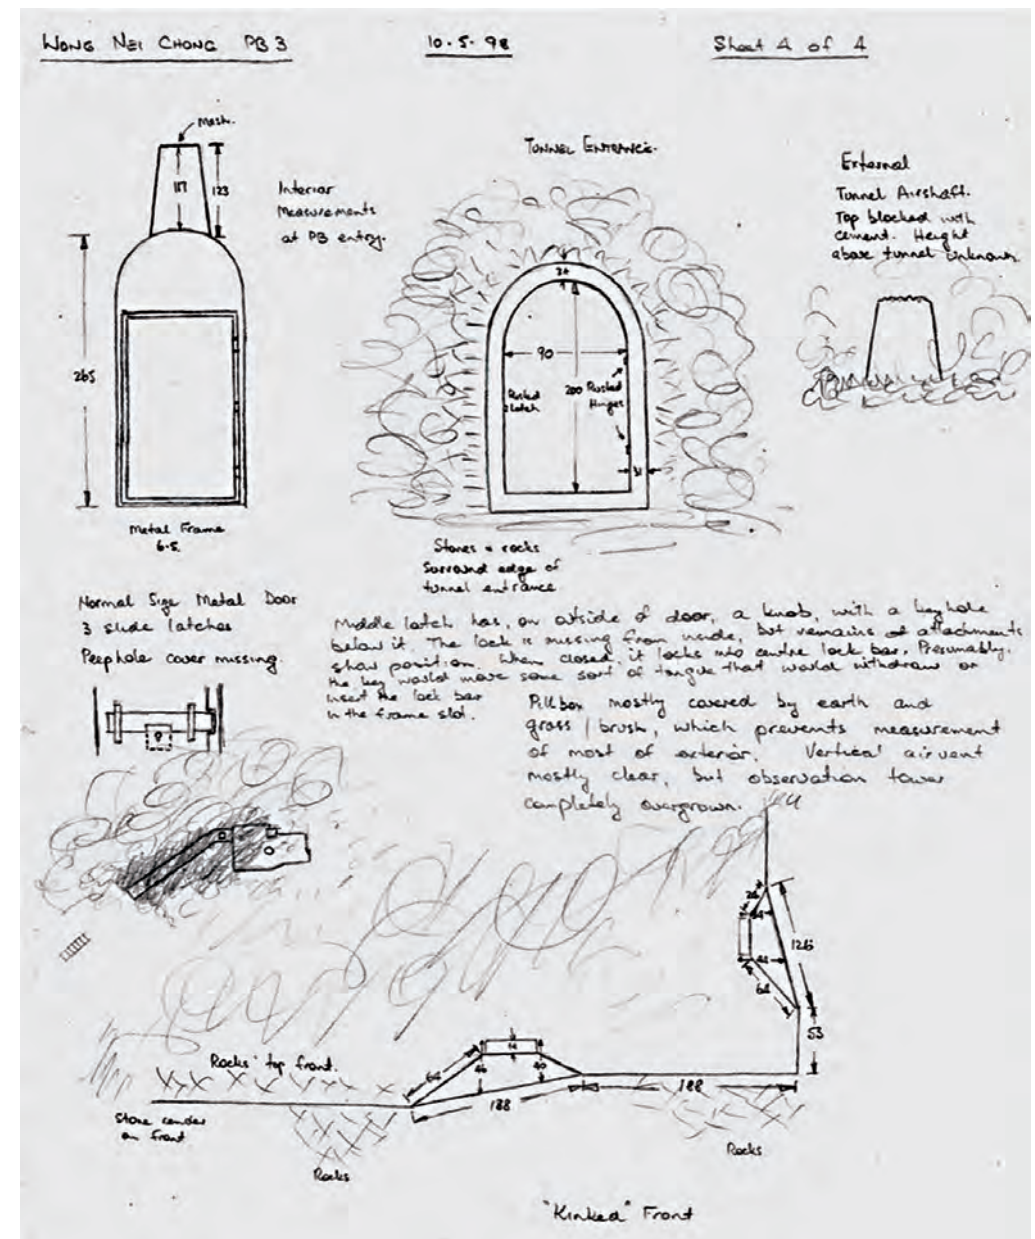 WONG NEI CHONG PB 3
10.5.98
Sheet 4 of 4
Mesh.
117
123
Interior
Measurements
at PB entry.
265
Metal Frame
6.5.
TUNNEL ENTRANCE.
24
90
200
Rusted
Latch
Rusted
Hinges
31
Stones + rocks
surround edge of
tunnel entrance
External
Tunnel Airshaft.
Top blocked with
cement. Height
above tunnel unknown
Normal Size Metal Door
3 slide latches
Peephole cover missing.
Middle latch has, on outside of door, a knob, with a keyhole
below it. The lock is missing from inside, but remains of attachments
show position. When closed, it locks into centre lock bar. Presumably,
the key would move some sort of tongue that would withdraw or
insert the lock bar
in the frame slot.
Pillbox mostly covered by earth and
grass / brush, which prevents measurement
of most of exterior. Vertical air vent
mostly clear, but observation tower
completely overgrown.
126
64
53
Rocks top front.
64
14
46
40
188
188
Stone render
on front
Rocks
Rocks
"Kinked" Front